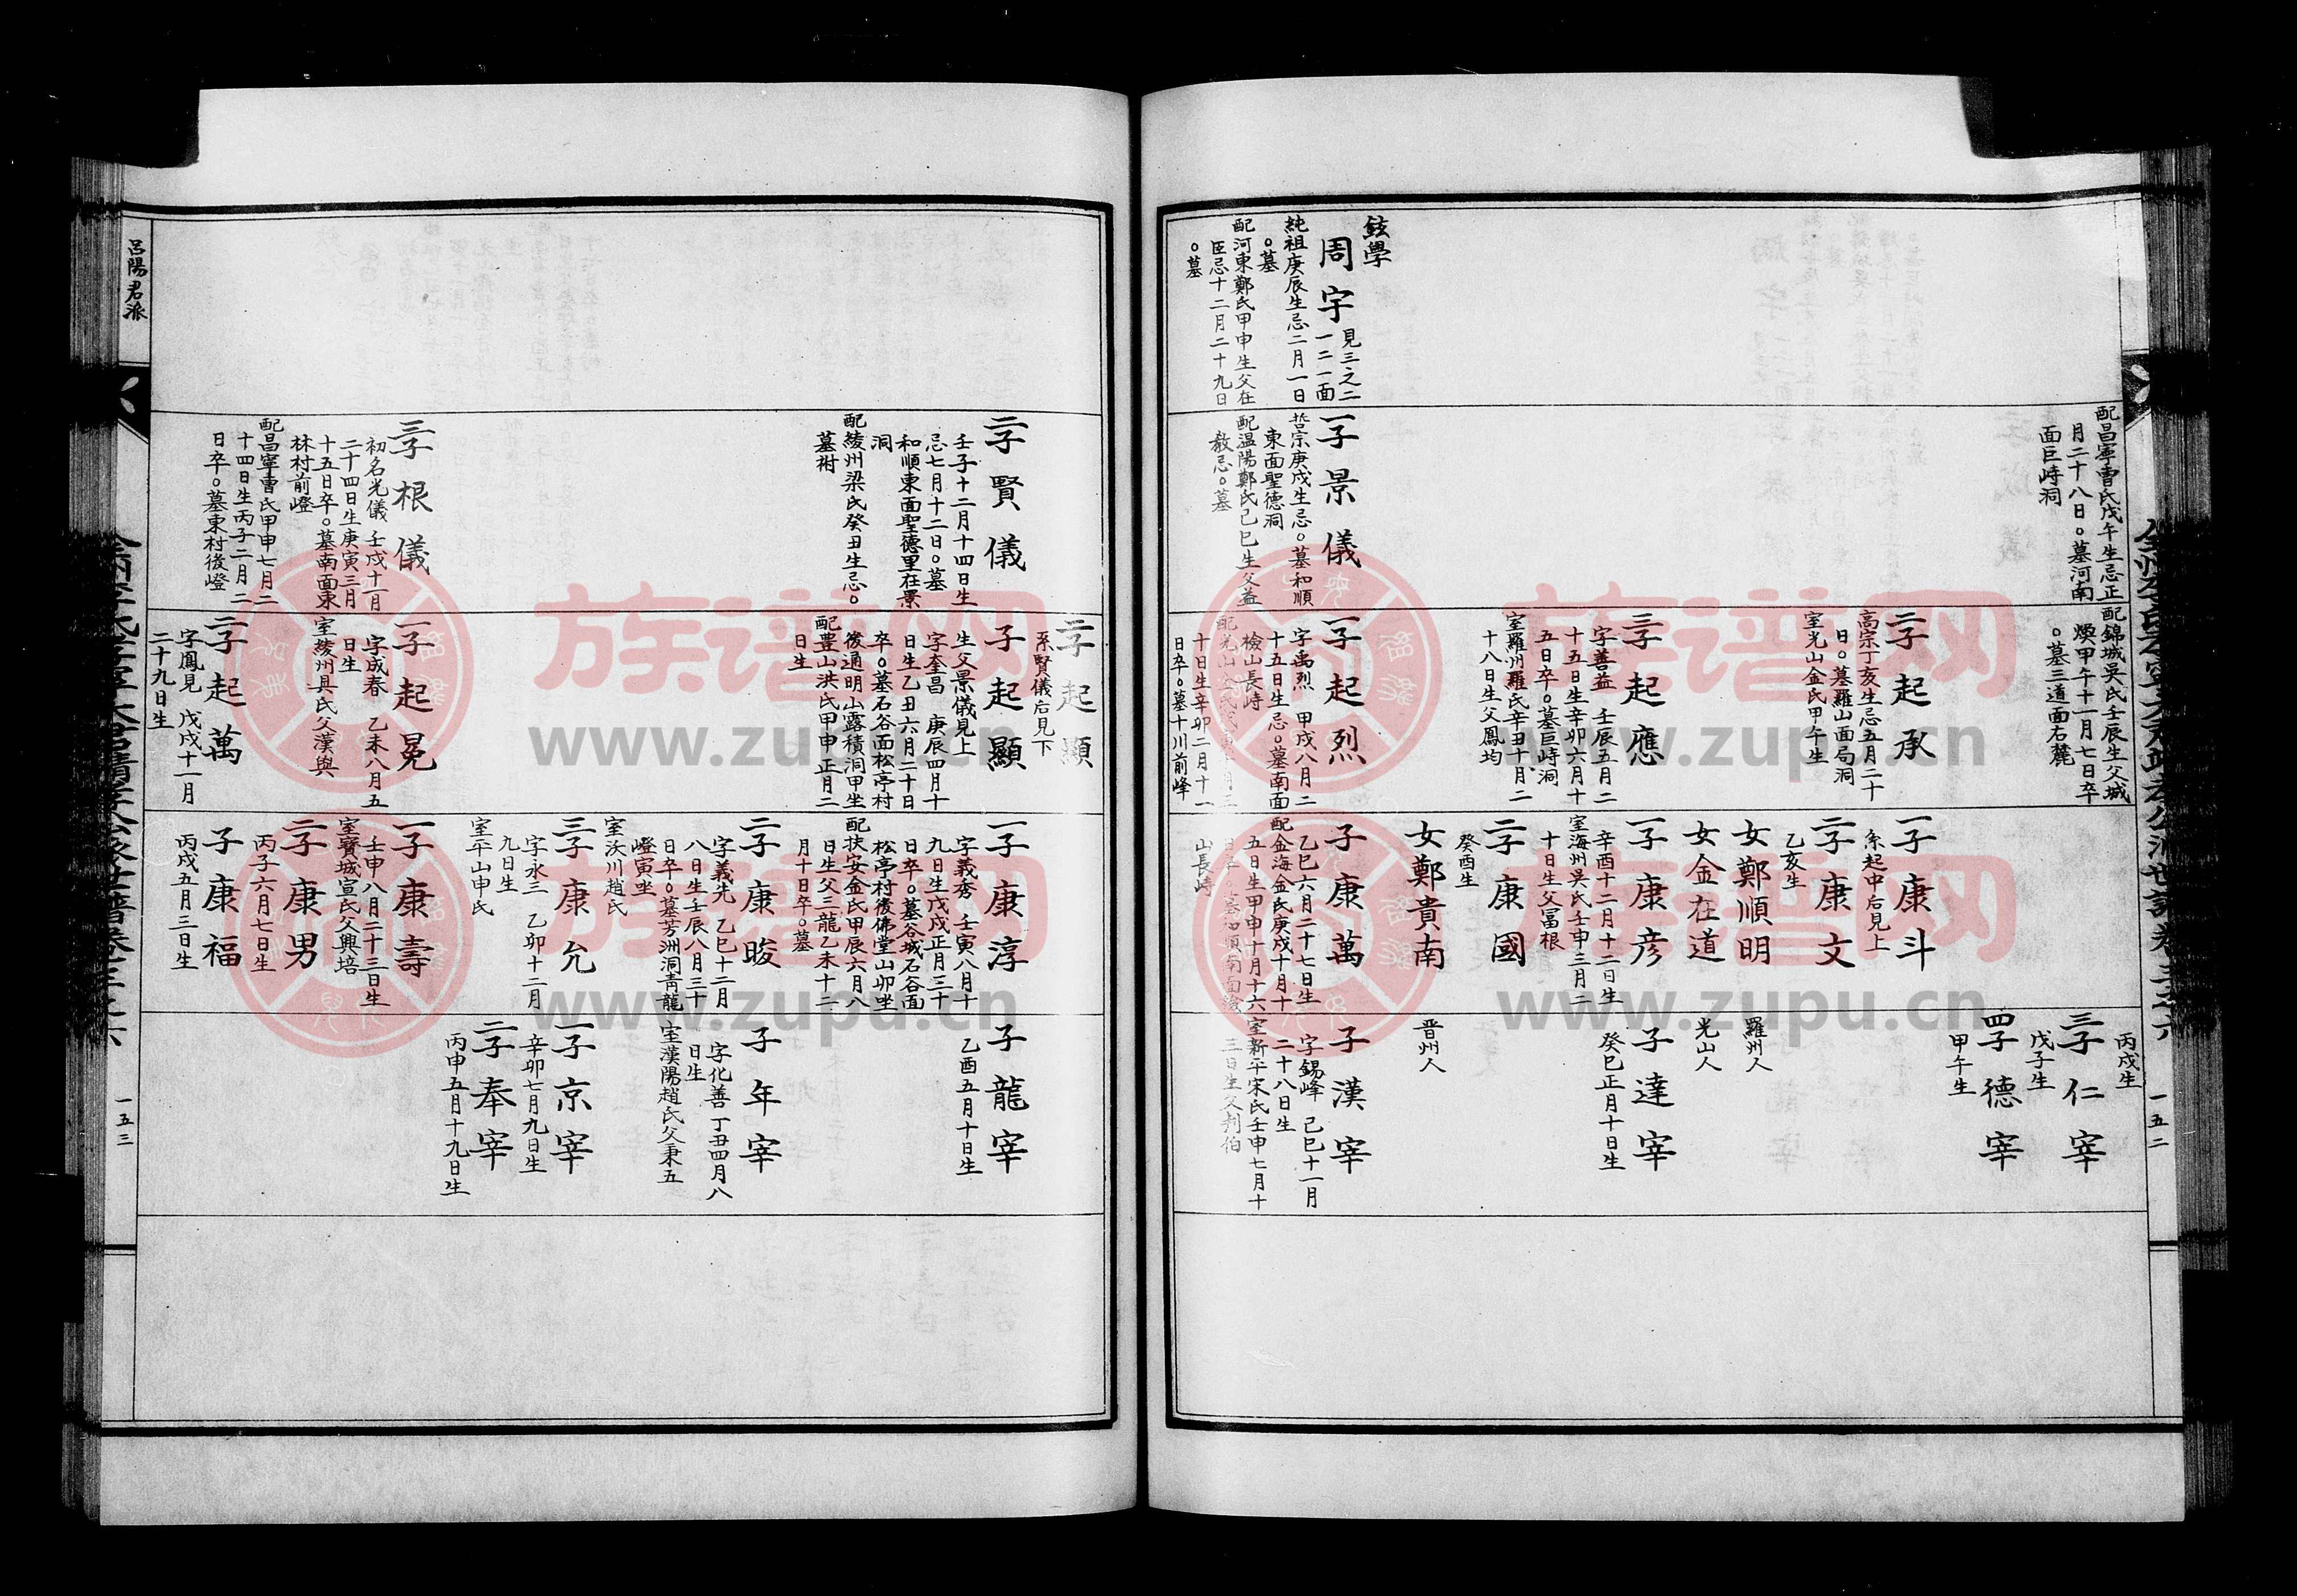 配昌寧曹氏戊午生忌正
月二十八日○墓河南
面巨峙洞
鉉學
周宇
見三之二
一二一面
純祖庚辰生忌二月一日
○墓
配河東鄭氏甲申生父在
臣忌十二月二十九日
○墓
一子景儀
哲宗庚戌生忌○墓和順
東面聖德洞
配溫陽鄭氏己巳生父益
教忌○墓
配錦城吳氏壬辰生父城
煥甲午十一月七日卒
○墓三道面石麓
二子起承
高宗丁亥生忌五月二十
日○墓羅山面局洞
室光山金氏甲午生
三子起應
字善益 壬辰五月二
十五日生辛卯六月十
五日卒○墓巨峙洞
室羅州羅氏辛丑十月二
十八日生父鳳均
一子起烈
字禹烈 甲戌八月二
十五日生忌○墓南面
檢山長峙
十日生辛卯二月十一
日卒○墓十川前峰
一子康斗
系起中后見上
二子康文
乙亥生
女鄭順明
女金在道
一子康彦
辛酉十二月十二日生
室海州吳氏壬申三月二
十日生父冨根
二子康國
癸酉生
女鄭貴南
子康萬
乙巳六月二十七日生
配金海金氏庚戌十月十
五日生甲申十月十六
日卒○墓和順南面
山長峙
丙戌生
三子仁宰
戊子生
四子德宰
甲午生
羅州人
光山人
子達宰
癸巳正月十日生
晋州人
子漢宰
字錫峰 己巳十一月
二十八日生
室新平宋氏壬申七月十
三日生父判伯
一五二
二子賢儀
壬子十二月十四日生
忌七月十二日○墓
和順東面聖德里在景
洞
配綾州梁氏癸丑生忌○
墓祔
三子根儀
初名光儀 壬戌十一月
二十四日生庚寅三月
十五日卒○墓南面東
林村前嶝
配昌寧曹氏甲申七月二
十四日生丙子二月二
日卒○墓東村後嶝
二子起顯
系賢儀后見下
子起顯
生父景儀見上
字奎昌 庚辰四月十
日生乙丑六月二十日
卒○墓石谷面松亭村
後通明山露積洞甲坐
配豊山洪氏甲申正月二
日生
一子起冕
字成春 乙未八月五
日生
室綾州具氏父漢與
二子起萬
字鳳見 戊戌十一月
二十九日生
一子康淳
字義秀 壬寅八月十
九日生戊戌正月三十
日卒○墓谷城石谷面
松亭村後佛堂山卯坐
配扶安金氏甲辰六月八
日生父三龍乙未十二
月十日卒○墓
二子康晙
字義先 乙巳十二月
八日生壬辰八月三十
日卒○墓芳洲洞靑龍
嶝寅坐
室沃川趙氏
三子康允
字永三 乙卯十二月
九日生
室平山申氏
一子康壽
壬申八月二十三日生
室寶城宣氏父興培
二子康男
丙子六月七日生
子康福
丙戌五月三日生
子龍宰
乙酉五月十日生
子年宰
字化善 丁丑四月八
日生
室漢陽趙氏父秉五
一子京宰
辛卯七月九日生
二子奉宰
丙申五月十九日生
呂陽君派
一五三
族谱网
www.zupu.cn
族谱网
www.zupu.cn
族谱网
www.zupu.cn
族谱网
www.zupu.cn